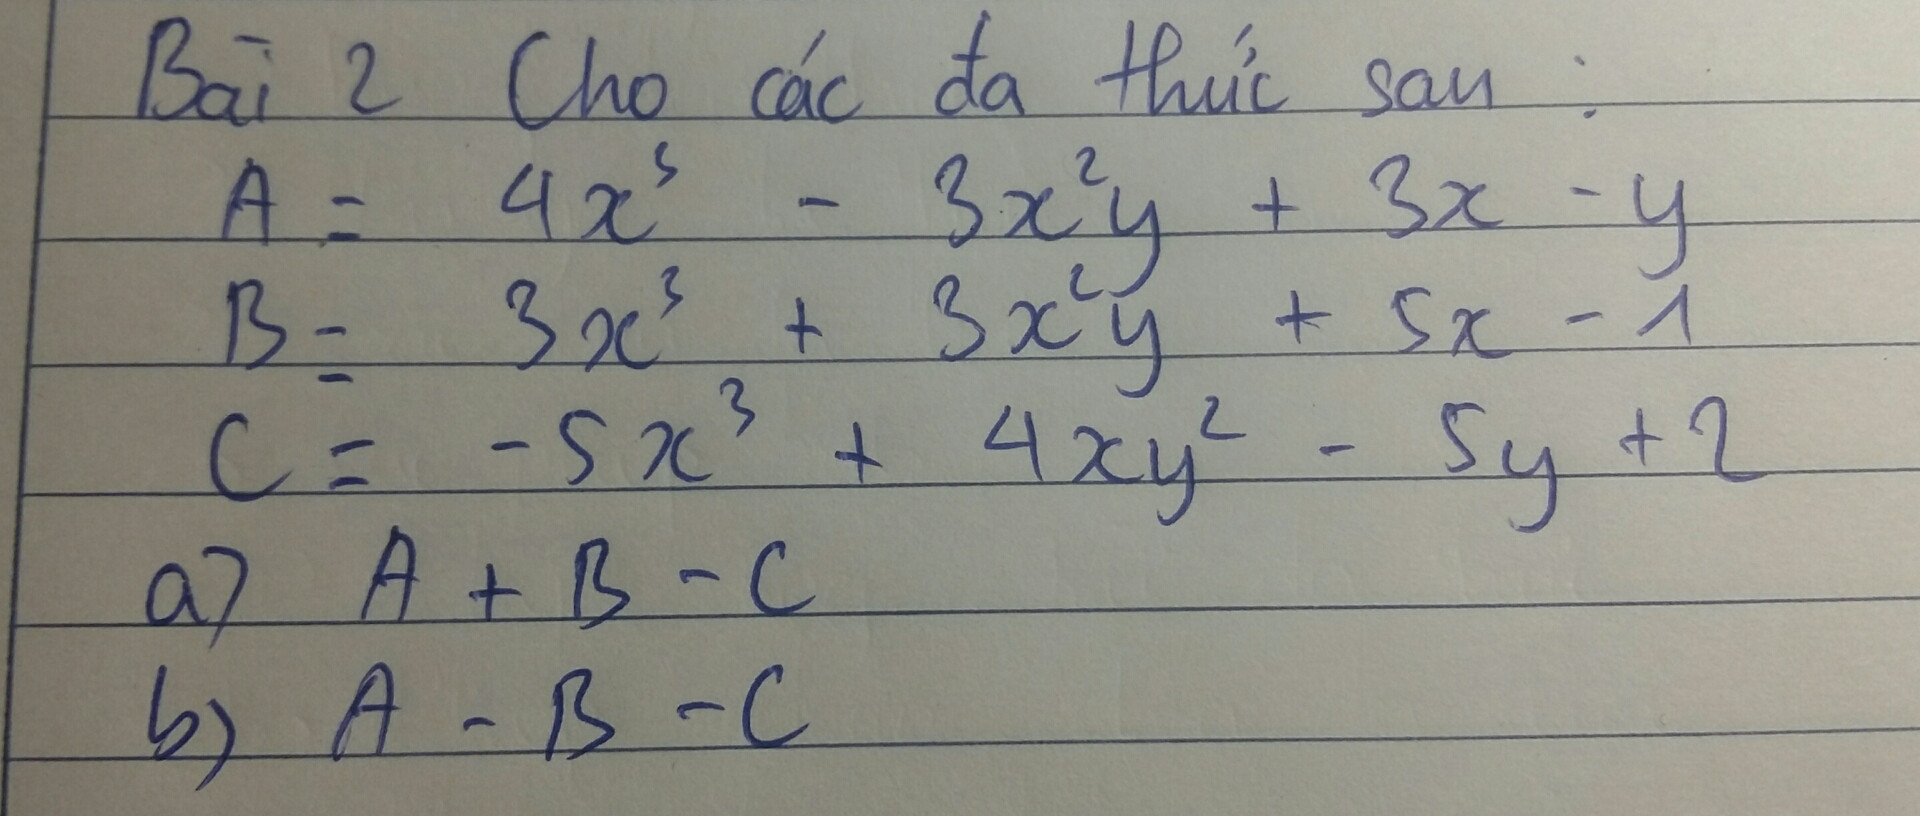 Bài 2 Cho các đa thức sau :
A = 4x³ - 3x²y + 3x - y
B = 3x³ + 3x²y + 5x - 1
C = -5x³ + 4xy² - 5y + 2
a) A + B - C
b) A - B - C